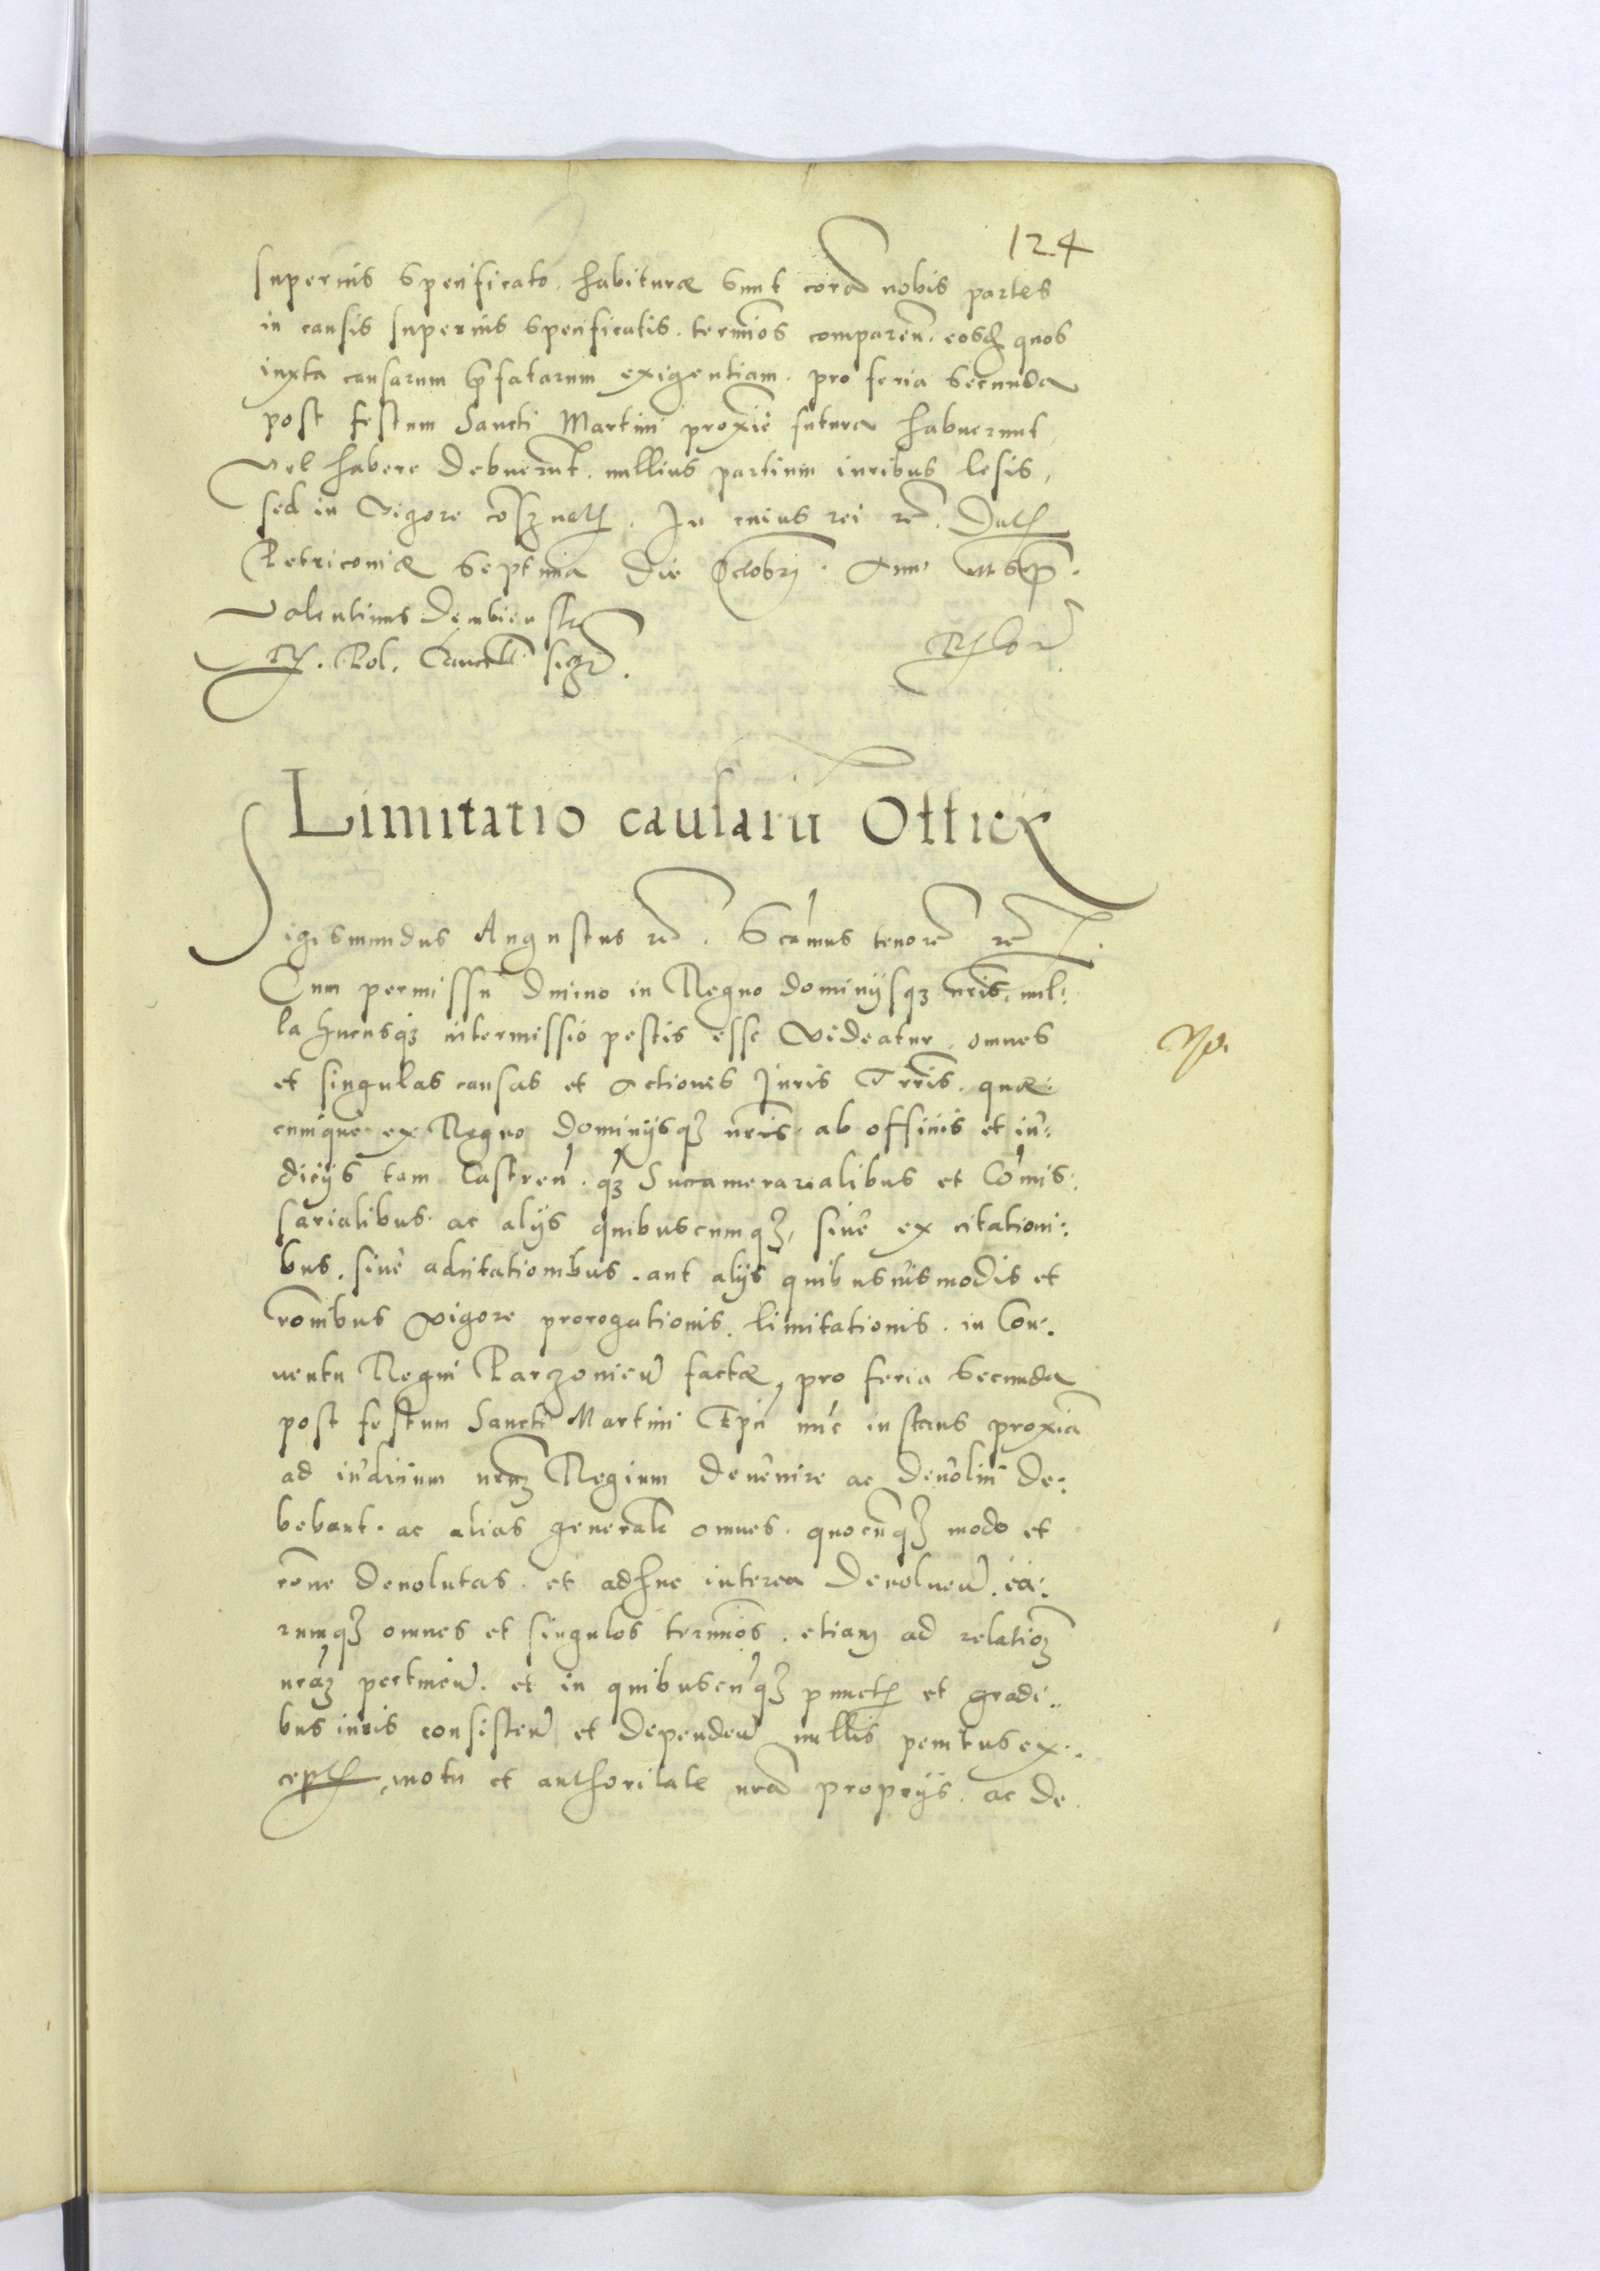 124
superius specificato. habituræ sunt corã nobis partes
in causis superius specificatis. termĩos comparen̄. eosdē quos
iuxta causarum p̃fatarum exigentiam. pro feria secunda
post festum Sancti Martini proxīe futura habuerunt
vel habere debuerūt. nullius partium iuribus lesis,
sed in vigore In cuius rei rē. Dat̃
Petricouiæ septima die Octobr̃. Ann̄
Valentinus Dembiensky
R. Pol. Cancell̃ sigr̃.
Limitatio causarū Officÿ
Sigismundus Augustus rē. tenorē rē
Cum permissu diuino in Regno dominijsq̃ nr̃is. nul:
la hucusq̃ intermissio pestis esse videatur, omnes
et singulas causas et actiones Iuris Trr̃is. quæ:
cumque ex Regno dominijsq̃ nr̃is. ab officijs et iu:
dicijs tam Castren̄. q̃ Succamerarialibus et Com̃is:
sarialibus ac alijs quibuscumq̃, siue ex citationi:
bus. siue adcitationibus. aut alijs quibusuis modis et
rōnibus vigore prorogationis. limitationis. in Con:
uentu Regni Parczouien̄ factæ, pro feria secunda
post festum Sancti Martini Ep̄i nūc instans proxīā
ad iudicium nr̃m Regium deuenire ac deuolui de:
bebant. ac alias generalr̃ omnes. quocūq̃ modo et
rōne deuolutas. et adhuc interea deuoluen̄. ea:
rumq̃ omnes et singulos termīos. etiam ad relatiōem
nr̃am pertinen̄. et in quibuscūq̃ punctis et gradi:
bus iuris consisten̄ et dependen̄ nullis penitus ex:
ceptis, motu et authoritate nr̃a proprijs. ac de